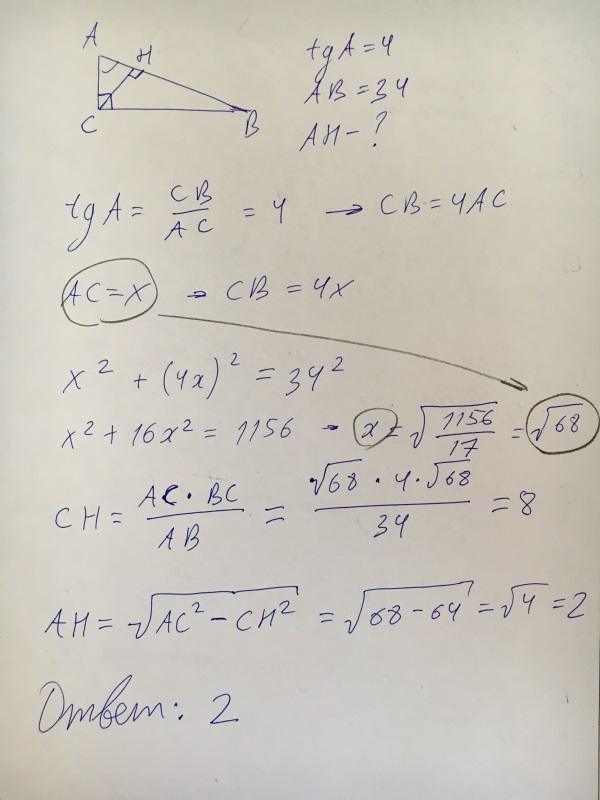 A
H
C
B
tgA = 4
AB = 34
AH - ?
tgA = CB/AC = 4 → CB = 4AC
AC = x → CB = 4x
x² + (4x)² = 34²
x² + 16x² = 1156 → x = √(1156/17) = √68
CH = AC · BC/AB = √68 · 4 · √68/34 = 8
AH = √(AC² - CH²) = √(68 - 64) = √4 = 2
Ответ: 2